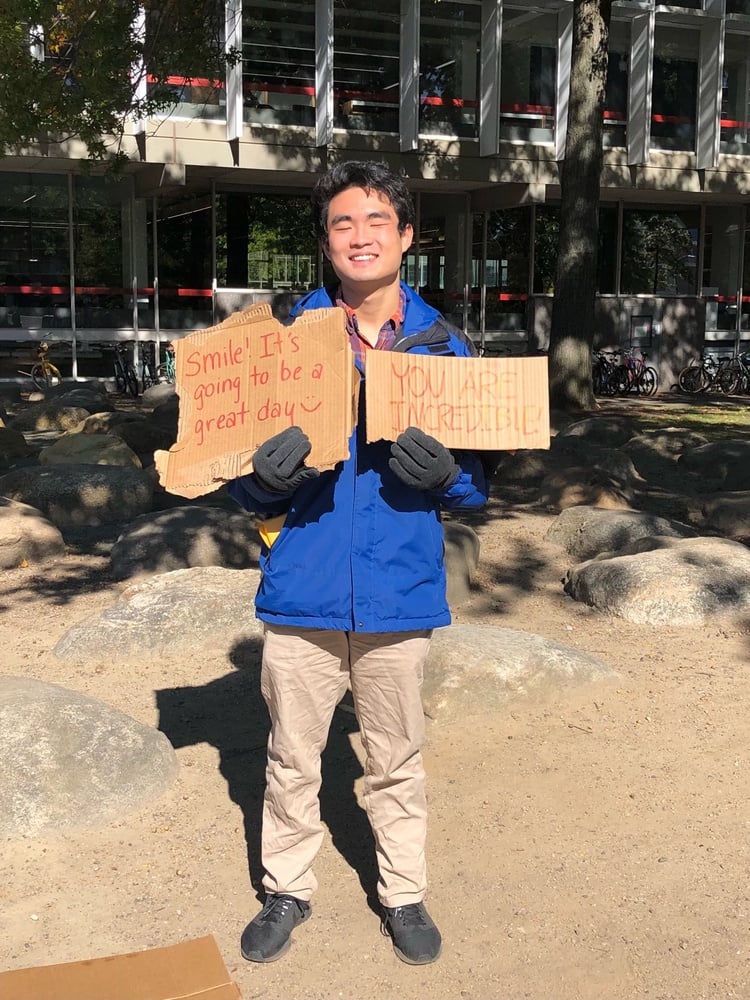 Smile! It's
going to be a
great day :)
YOU ARE
INCREDIBLE!